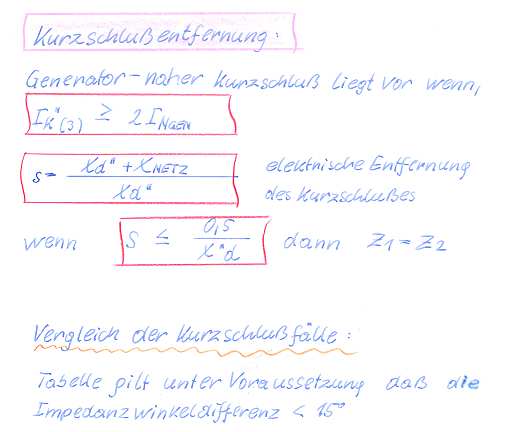 Kurzschlußentfernung:
Generator-naher Kurzschluß liegt vor wenn,
I"K(3) ≥ 2 INGEN
s = (Xd" + XNETZ) / Xd" elektrische Entfernung
des Kurzschlußes
wenn S ≤ 0,5 / X"d dann Z1 = Z2
Vergleich der Kurzschlußfälle:
Tabelle gilt unter Voraussetzung daß die
Impedanzwinkeldifferenz < 15°